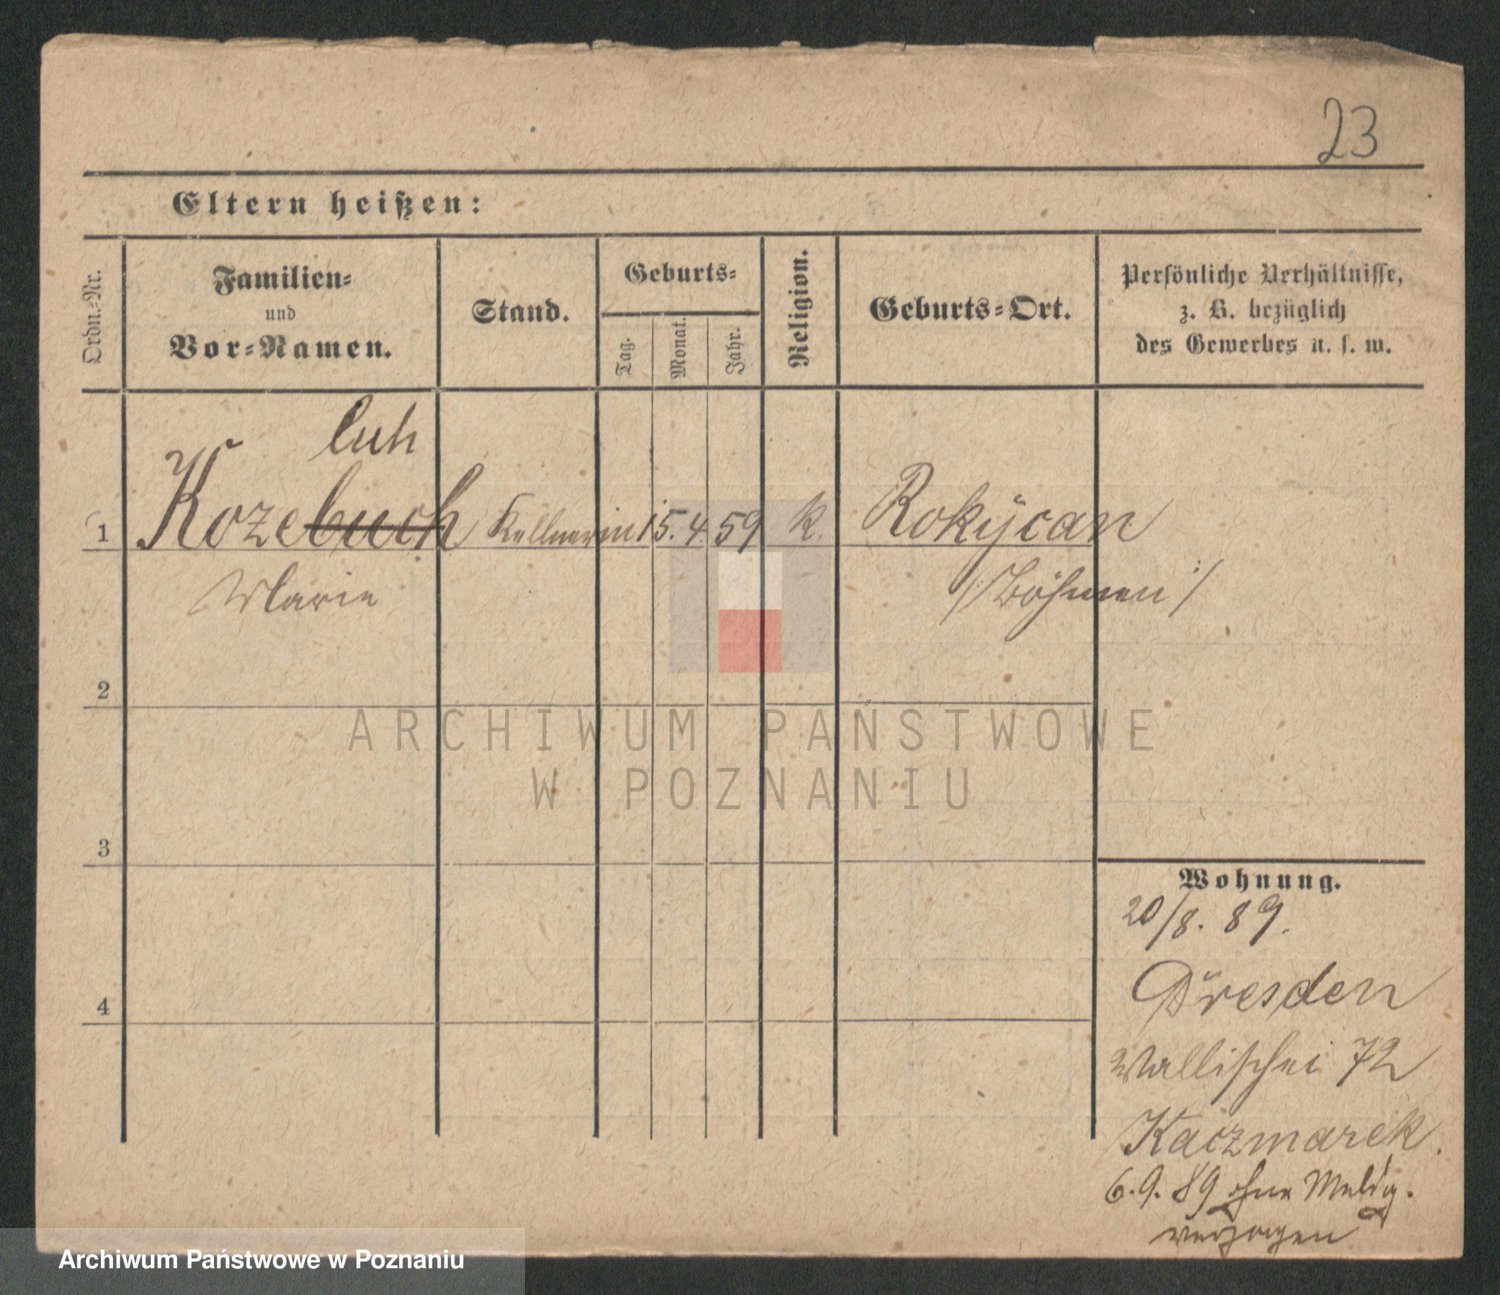 23
Eltern heißen:
Ordn.-Nr.
Familien-
und
Vor-Namen.
Stand.
Geburts-
Tag.
Monat.
Jahr.
Religion.
Geburts-Ort.
Persönliche Verhältnisse,
z. B. bezüglich
des Gewerbes u. s. w.
luh
1 Kozebuch Kellnerin 15. 4. 59 k. Rokycan
Marie /: Böhmen :/
2
ARCHIWUM PAŃSTWOWE
W POZNANIU
3
4
Wohnung.
20/8. 89.
Dresden
Wallischei 72
Kaczmarek.
6.9.89 ohne Meldg.
verzogen
Archiwum Państwowe w Poznaniu